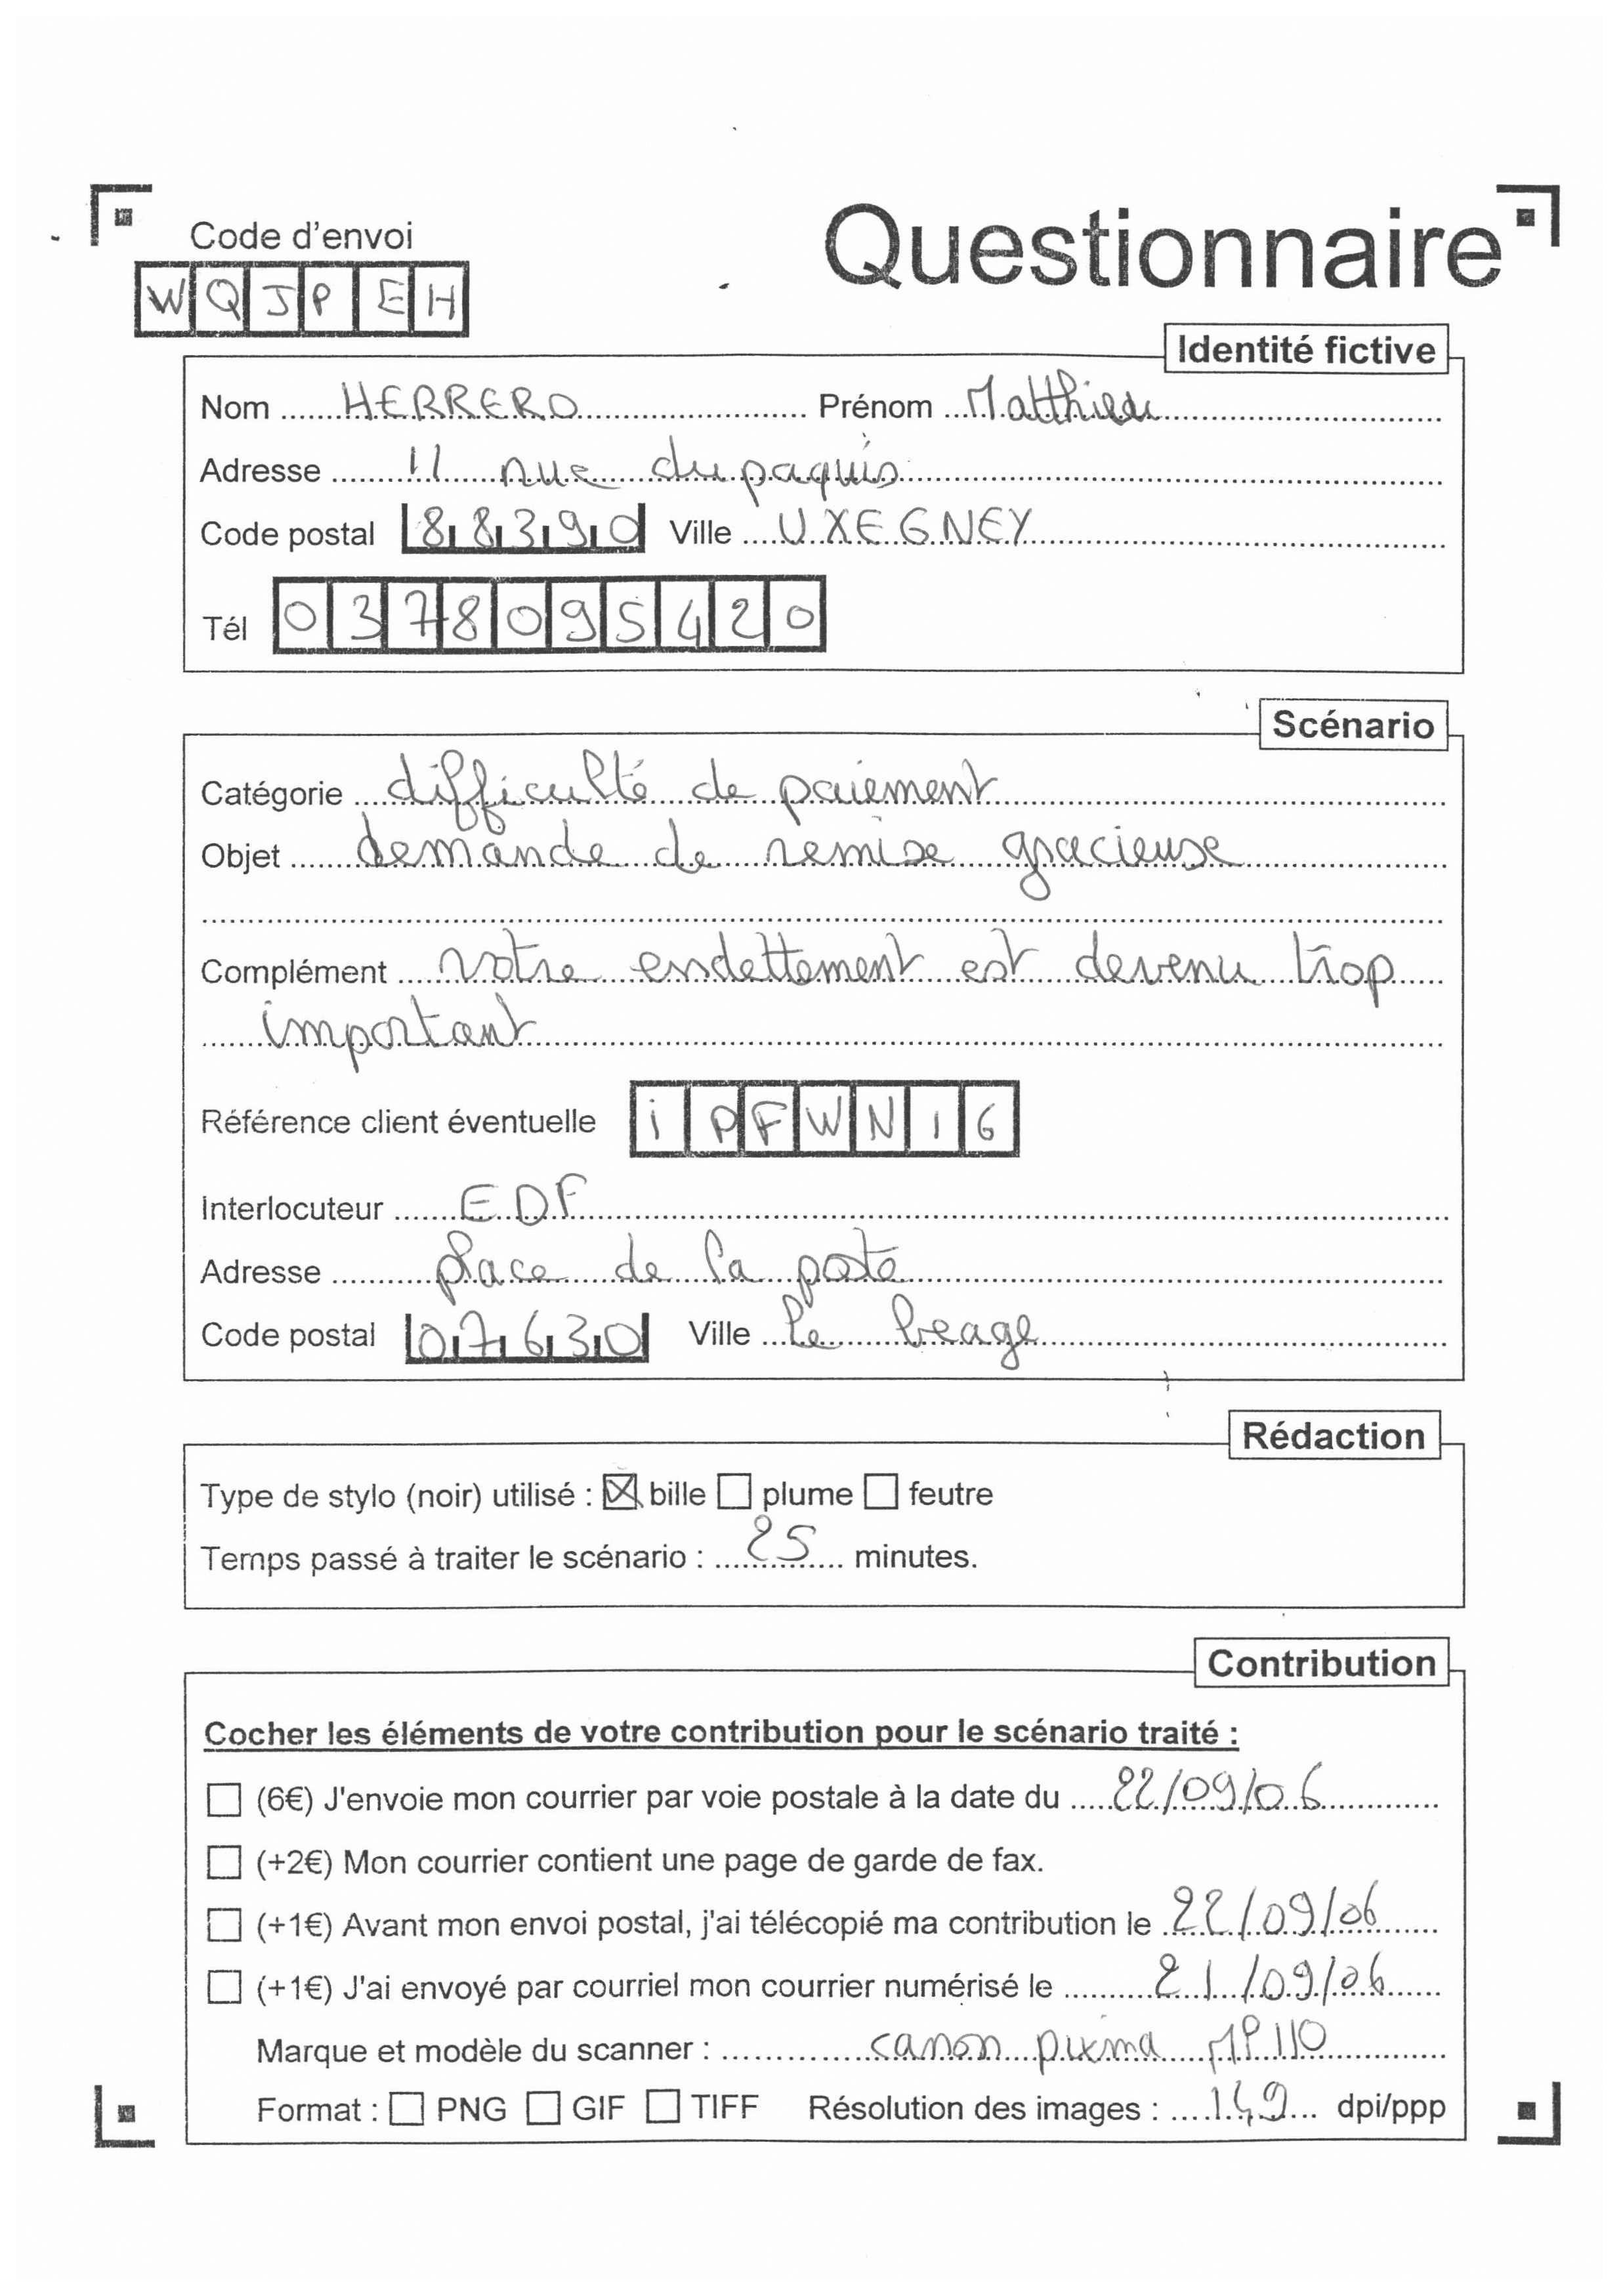 Code d'envoi
Questionnaire
WQJPEH
Identité fictive
Nom HERRERO Prénom Matthieu
Adresse 11 rue du paquis
Code postal 88390 Ville UXEGNEY
Tél 0378095420
Scénario
Catégorie difficulté de paiement
Objet demande de remise gracieuse
Complément votre endettement est devenu trop
important
Référence client éventuelle iPFWN16
Interlocuteur EDF
Adresse place de la poste
Code postal 07630 Ville le beage
Rédaction
Type de stylo (noir) utilisé : ☒ bille ☐ plume ☐ feutre
Temps passé à traiter le scénario : 25 minutes.
Contribution
Cocher les éléments de votre contribution pour le scénario traité :
☐ (6€) J'envoie mon courrier par voie postale à la date du 22/09/06
☐ (+2€) Mon courrier contient une page de garde de fax.
☐ (+1€) Avant mon envoi postal, j'ai télécopié ma contribution le 22/09/06
☐ (+1€) J'ai envoyé par courriel mon courrier numérisé le 21/09/06
Marque et modèle du scanner : canon pixma MP110
Format : ☐ PNG ☐ GIF ☐ TIFF Résolution des images : 149 dpi/ppp